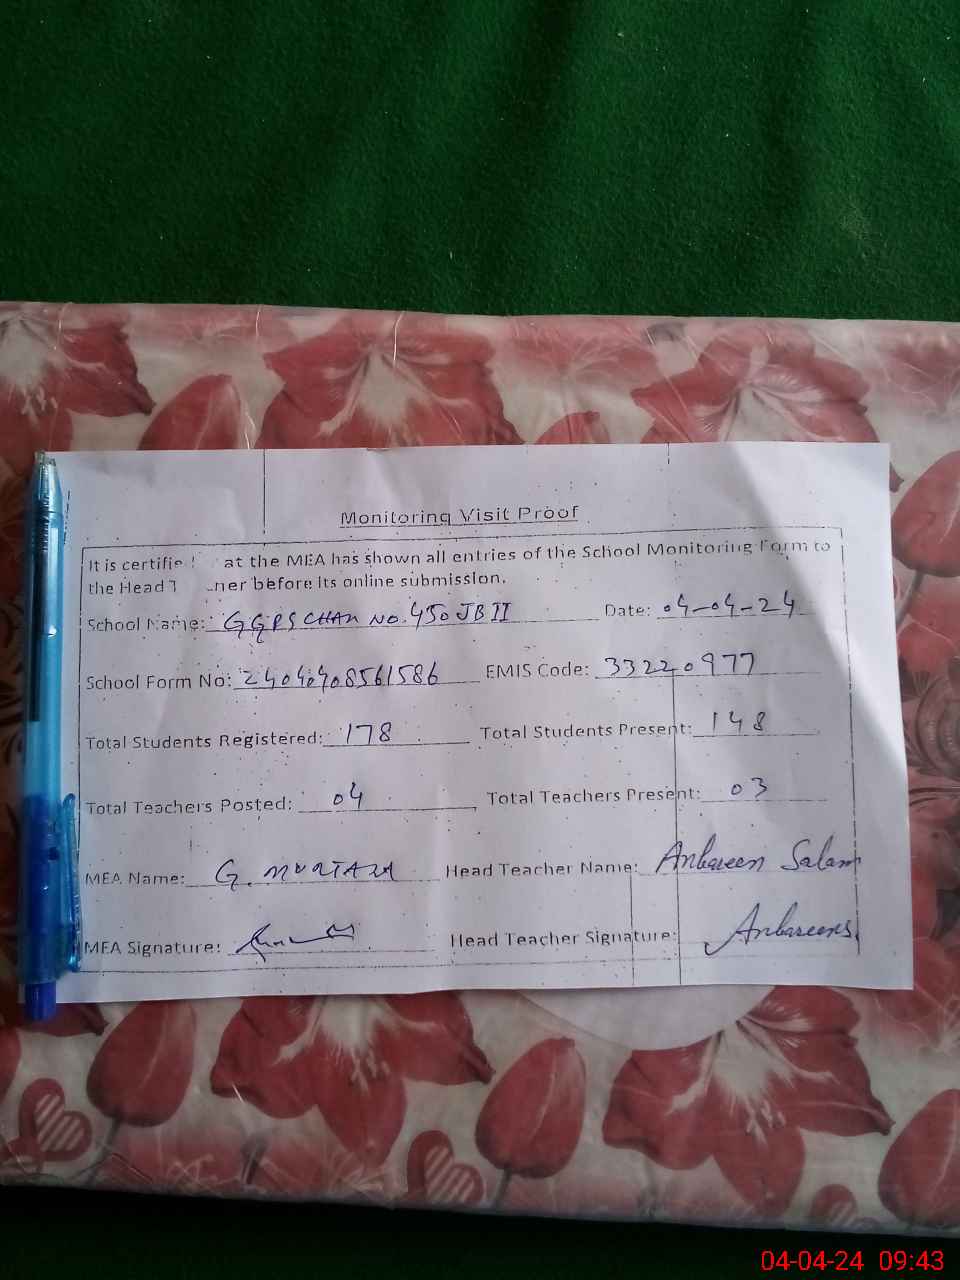 Monitoring Visit Proof
It is certifie at the MEA has shown all entries of the School Monitoring Form to
the Head T ner before its online submission.
School Name: GGPS CHAK NO. 450 JB II Date: 04-04-24
School Form No: 24040408561586 EMIS Code: 33220977
Total Students Registered: 178 Total Students Present: 148
Total Teachers Posted: 04 Total Teachers Present: 03
MEA Name: G. MURTAZA Head Teacher Name: Anbareen Salam
MEA Signature: Head Teacher Signature: Anbareens.
04-04-24 09:43